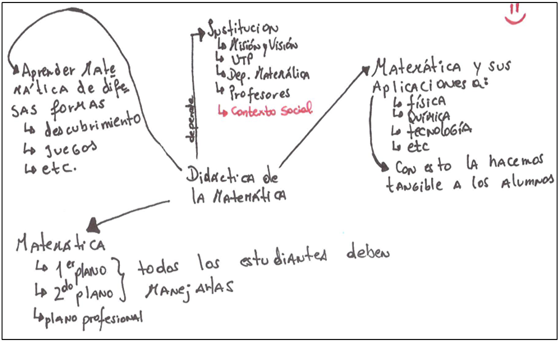 Aprender Mate
mática de dife
sas formas
↳ descubrimiento
↳ juegos
↳ etc.
depende
Sustitucion
↳ Misión y Visión
↳ UTP
↳ Dep. Matemática
↳ Profesores
↳ Contexto Social
Matemática y sus
Aplicaciones a:
↳ física
↳ química
↳ tecnología
↳ etc
Con esto la hacemos
tangible a los alumnos
Didáctica de
la Matemática
Matemática
↳ 1er plano
↳ 2do plano
todos los estudiantes deben
manejarlas
↳ plano profesional